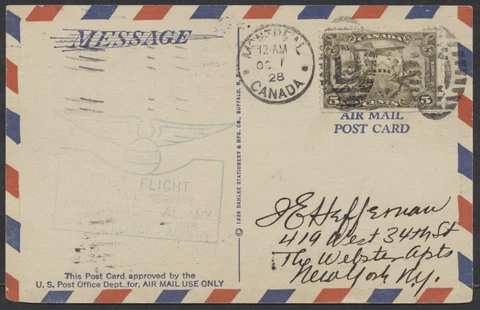 MESSAGE
MONTREAL
12 AM
OC 1
28
CANADA
CANADA
5 CENTS 5
AIR MAIL
POST CARD
FLIGHT
SERVICE
ANY
© 1928 DAHLKE STATIONERY & MFG. CO., BUFFALO,
J E Heffernan
419 West 34th St
The Webster Apts
New York Ny.
This Post Card approved by the
U. S. Post Office Dept., for, AIR MAIL USE ONLY